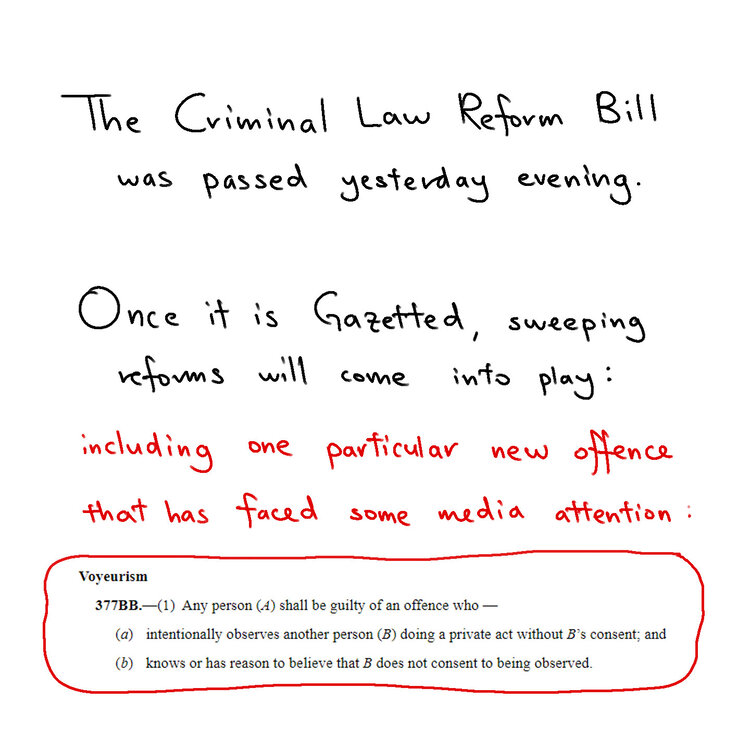 The Criminal Law Reform Bill
was passed yesterday evening.
Once it is Gazetted, sweeping
reforms will come into play:
including one particular new offence
that has faced some media attention:
Voyeurism
377BB.—(1) Any person (A) shall be guilty of an offence who —
(a) intentionally observes another person (B) doing a private act without B's consent; and
(b) knows or has reason to believe that B does not consent to being observed.